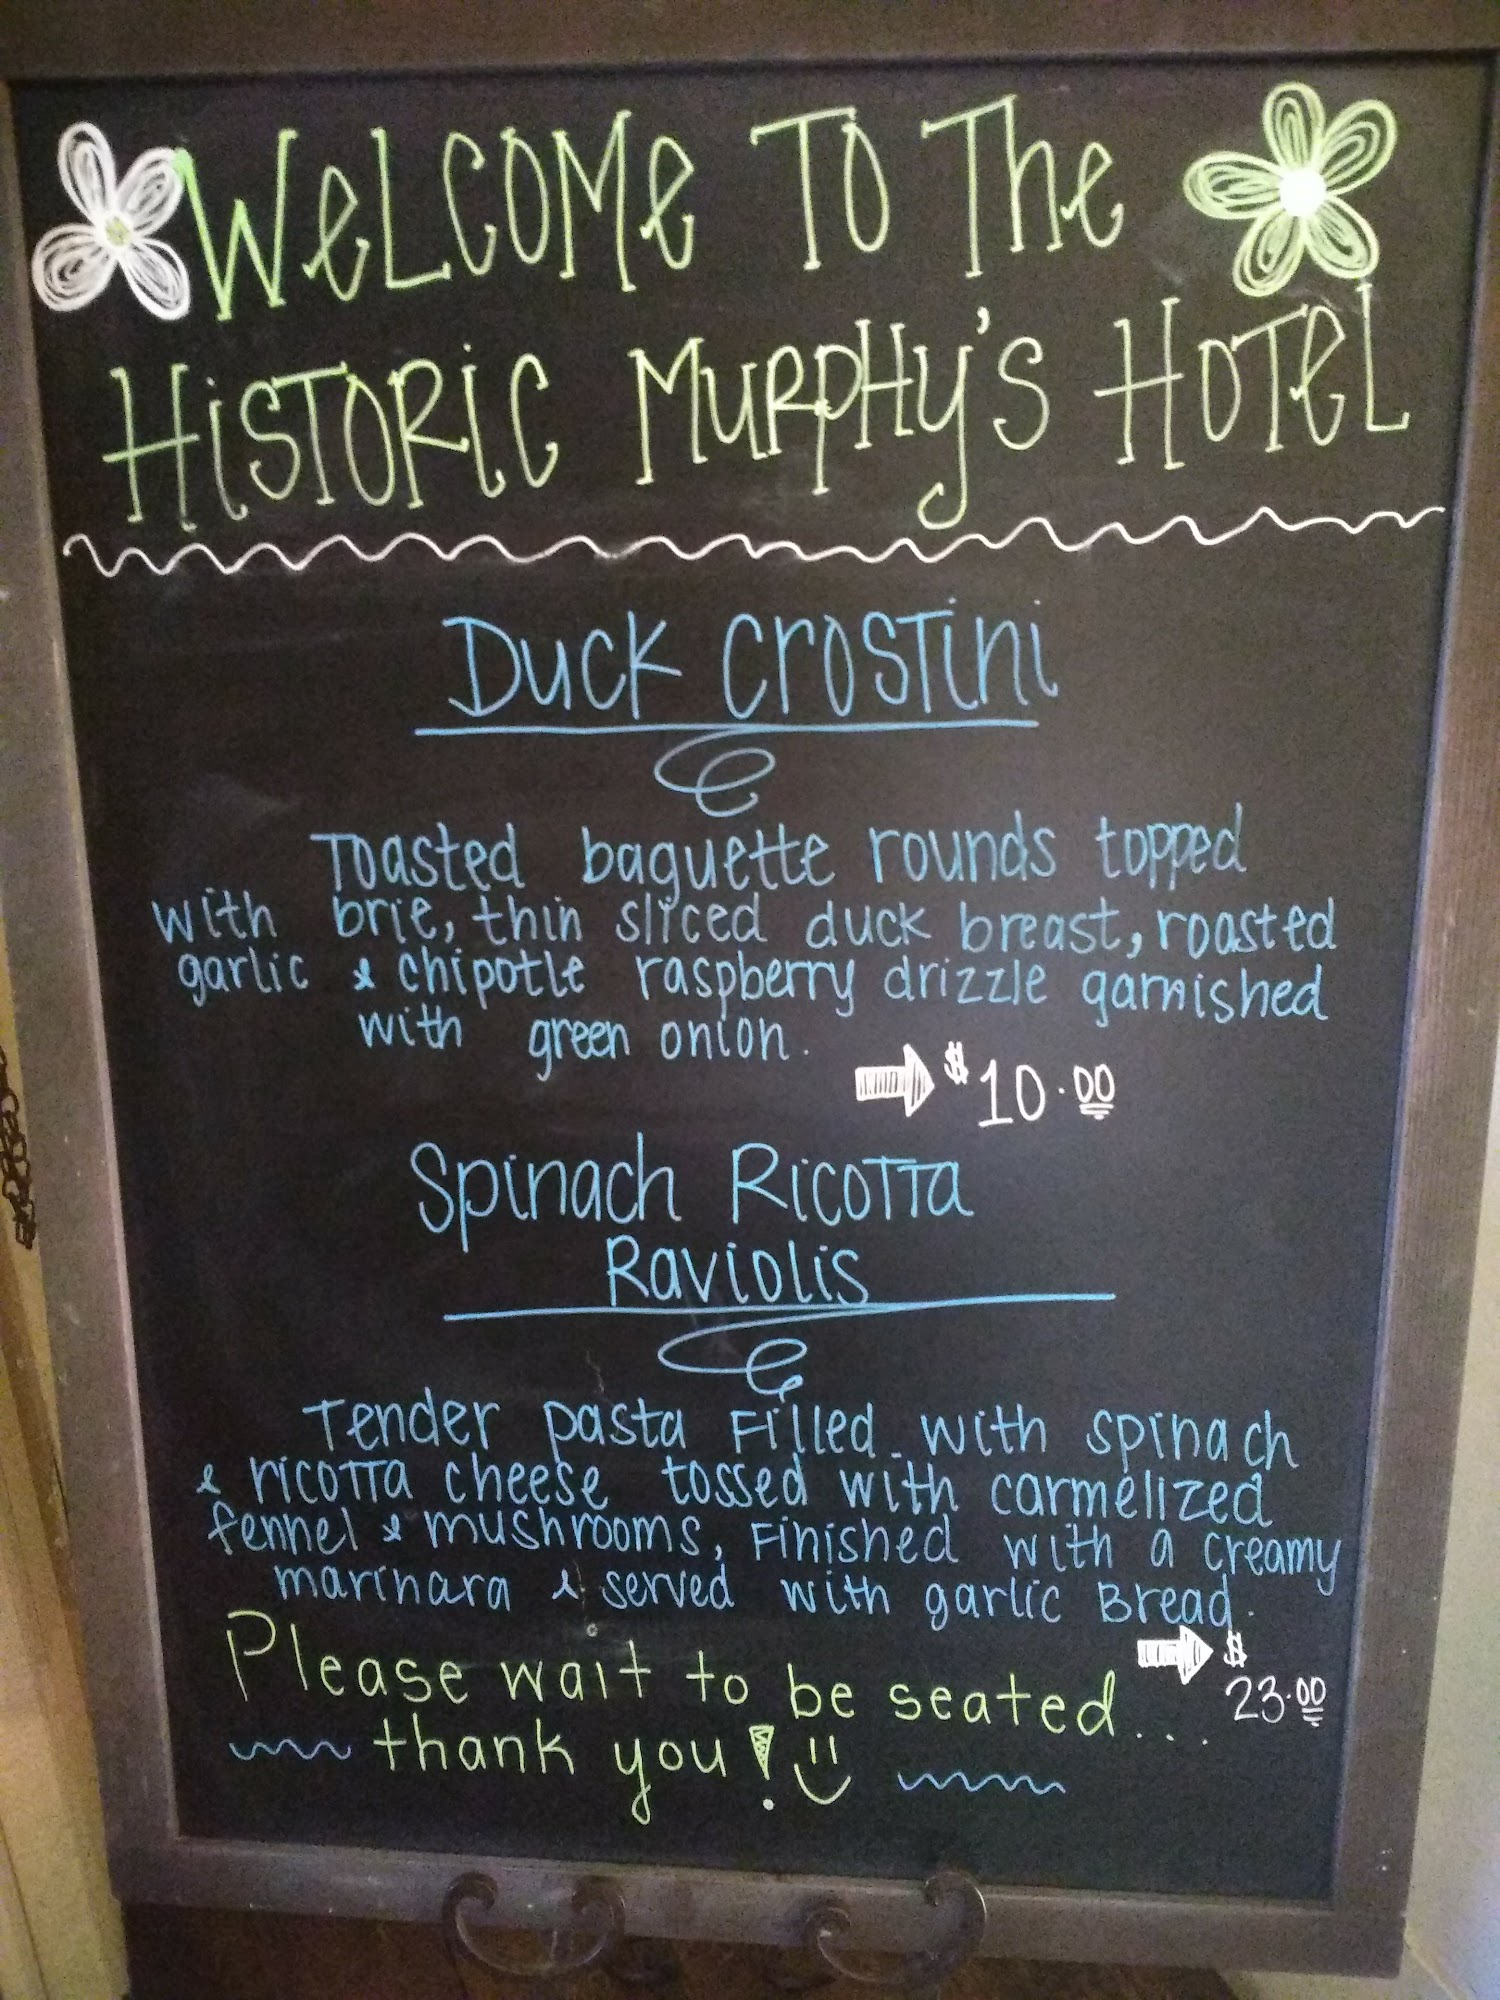 Welcome To The
Historic Murphy's Hotel
Duck Crostini
Toasted baguette rounds topped
with brie, thin sliced duck breast, roasted
garlic & chipotle raspberry drizzle garnished
with green onion.
$10.00
Spinach Ricotta
Raviolis
Tender pasta Filled with spinach
& ricotta cheese tossed with carmelized
fennel & mushrooms, Finished with a creamy
marinara & served with garlic Bread.
$
23.00
Please wait to be seated...
thank you!